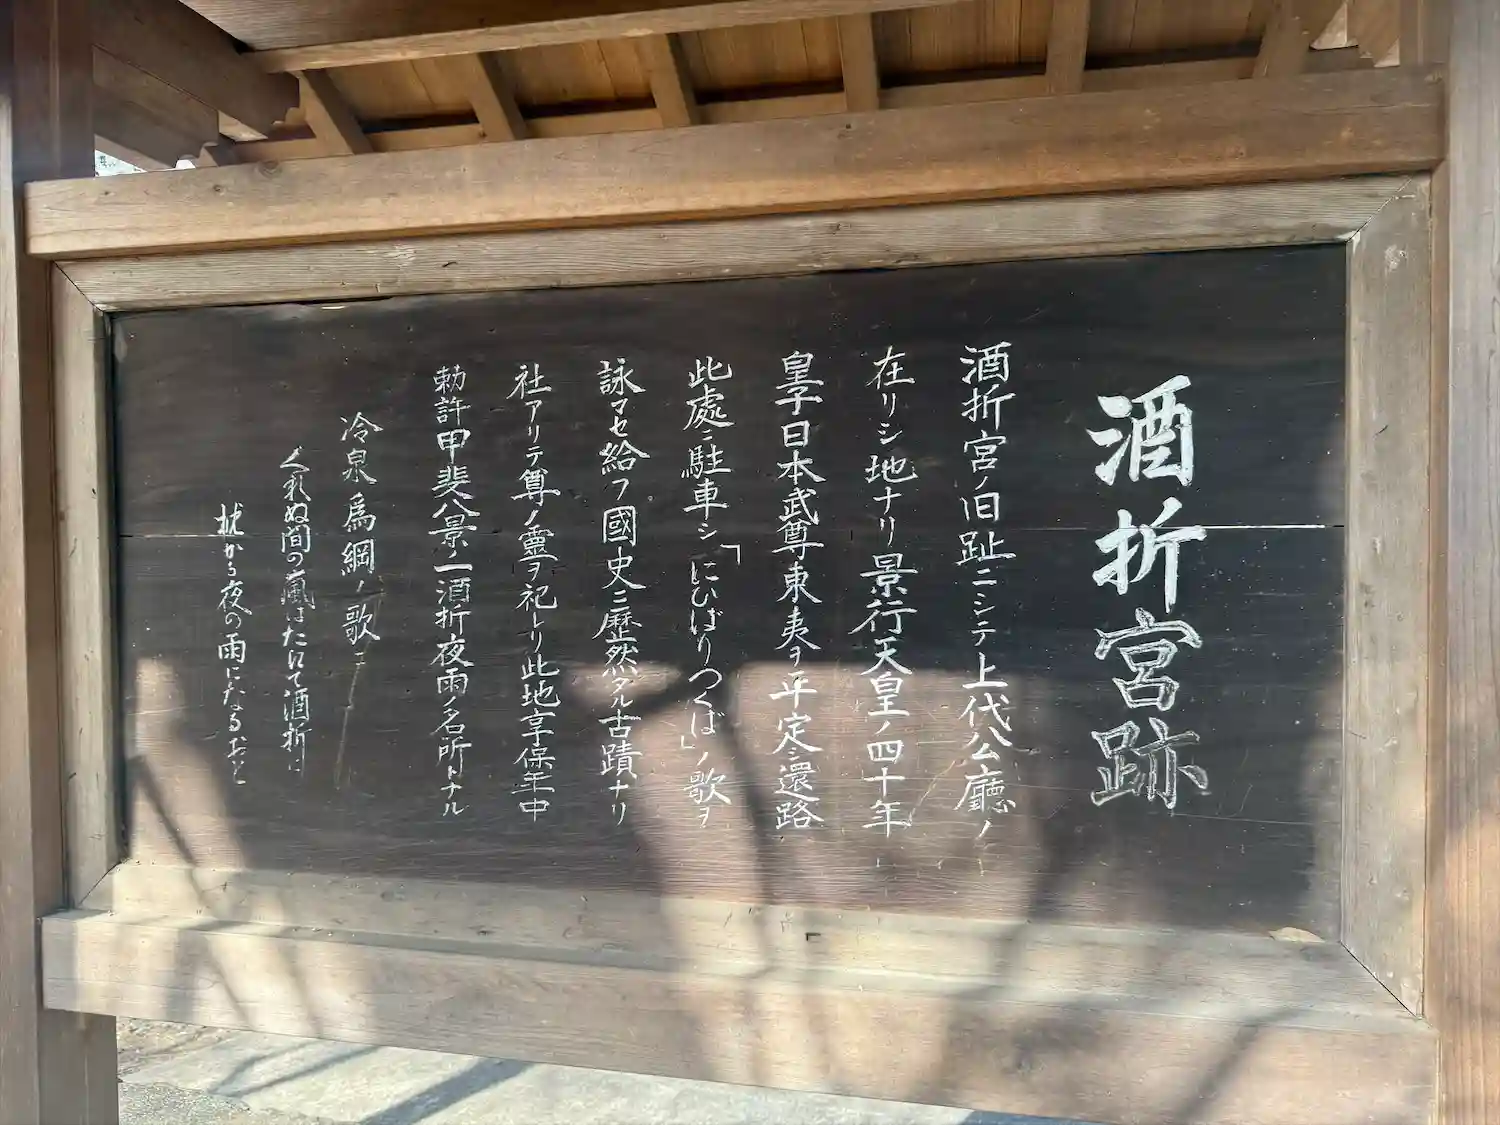 酒折宮跡
酒折宮ノ旧趾ニシテ上代公廳ノ
在リシ地ナリ景行天皇ノ四十年
皇子日本武尊東夷ヲ平定シ還路
此處ニ駐車シ「にひばりつくば」ノ歌ヲ
詠マセ給フ國史ニ歴然タル古蹟ナリ
社アリテ尊ノ靈ヲ祀レリ此地享保年中
勅許甲斐八景ノ一酒折夜雨ノ名所トナル
冷泉為綱ノ歌ニ
くれぬ間の嵐はたにて酒折の
枕から夜の雨になるおと